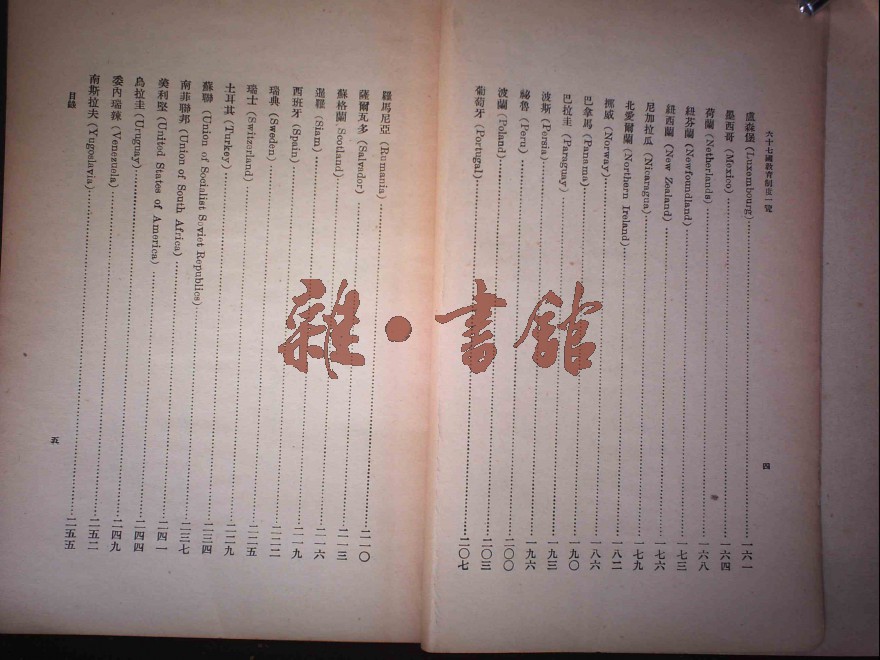 六十七國教育制度一覽 四
盧森堡 (Luxembourg)……一六一
墨西哥 (Mexico)……一六四
荷蘭 (Netherlands)……一六八
紐芬蘭 (Newfoundland)……一七三
紐西蘭 (New Zealand)……一七六
尼加拉瓜 (Nicaragua)……一七九
北愛爾蘭 (Northern Ireland)……一八二
挪威 (Norway)……一八六
巴拿馬 (Panama)……一九〇
巴拉圭 (Paraguay)……一九三
波斯 (Persia)……一九六
祕魯 (Peru)……二〇〇
波蘭 (Poland)……二〇三
葡萄牙 (Portugal)……二〇七
羅馬尼亞 (Rumania)……二一〇
薩爾瓦多 (Salvador)……二一三
蘇格蘭 (Scotland)……二一六
暹羅 (Siam)……二一九
西班牙 (Spain)……二二二
瑞典 (Sweden)……二二五
瑞士 (Switzerland)……二二九
土耳其 (Turkey)……二三四
蘇聯 (Union of Socialist Soviet Republics)……二三七
南菲聯邦 (Union of South Africa)……二四一
美利堅 (United States of America)……二四四
烏拉圭 (Uruguay)……二四九
委內瑞辣 (Venezuela)……二五二
南斯拉夫 (Yugoslavia)……二五五
目錄 五
雜·書館